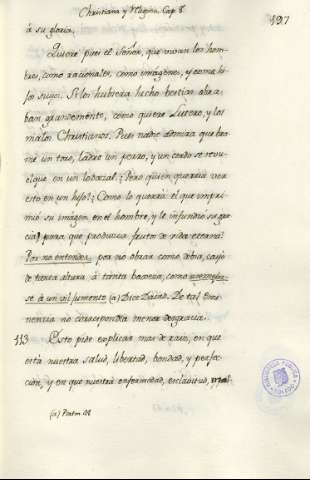 Christiana y Mистica, Cap. 8.
197
à su gloria.
Quiere pues el Señor, que vivan los hom-
bres, como racionales, como imágenes, y como hi-
jos suyos. Si los hubiera hecho bestias obra-
ban grandemente, como quiere Lutero, y los
malos Christianos. Pues nadie admira que bra-
me un toro, ladre un perro, y un cerdo se revu-
elque en un lodazal. ¿Pero quien querria ver
esto en un hijo? ¿Como lo querria el que impri-
mió su imágen en el hombre, y le infundió su gra-
cia, para que produxera frutos de vida eterna?
Por no entender, por no obrar como debia, cayó
de tanta altura à tanta baxeza, como
se à un vil jumento (a) Dice David. De tal Emi-
nencia no correspondia menor desgracia.
113 Esto pide explicar mas de raiz, en que
está nuestra salud, libertad, bondad, y perfec-
cion, y en que nuestra enfermedad, esclavitud, mal-
(a) Psalm 48